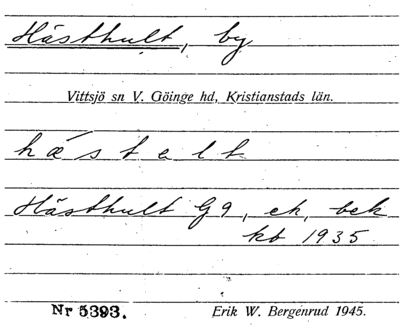 Hästhult, by
Vittsjö sn V. Göinge hd, Kristianstads län.
hǽstelt
Hästhult G9, ek, bek
kb 1935
Nr 5393. Erik W. Bergenrud 1945.